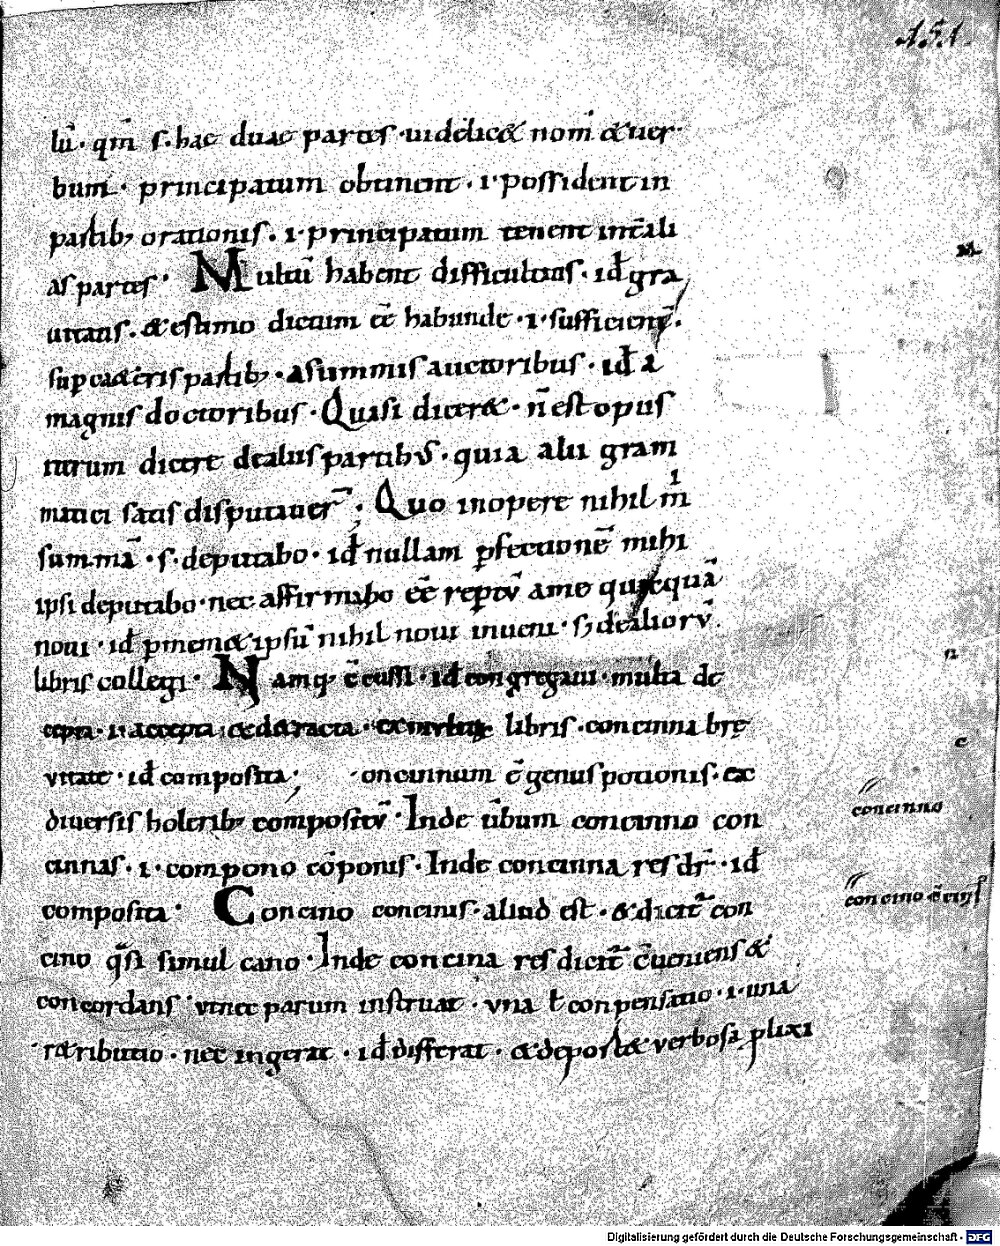 151.
lū · qm̄ s. hae duae partes · uidelicet nom̄ & uer
bum · principatum obtinent · i · possident in
partib; orationis . i · principatum tenent int̄ ali
as partes · Multū habent difficultatis . id gra
uitatis . & estimo dictum eē habunde · i · sufficient̄ .
sup caeteris partib; · a summis auctoribus · id a
magnis doctoribus · Quasi diceret · n̄ est opus
iterum dicere de aliis partibus · quia alii gram
matici satis disputauer̄ ; Quo in opere nihil m̄
summā · s · deputabo · id nullam pfectionē mihi
ipsi deputabo · nec affirmabo eē reptū a me quicquā
noui · id p memet ipsū nihil noui inueni · s; de aliorū
libris collegi · Namq; congregaui · multa de
cepta · i · accepta · libris · concinna bre
vitate · id composita ; oncinnum ē genus potionis · ex
diuersis holerib; compositū · Inde ūbum concinno con
cinnas · i · compono cōponis · Inde concinna res dr̄ · id
composita · Concino concinis · aliud est · & dicit̄ con
cino qsi simul cano · Inde concina res dicit̄ cueniens &
concordans · parum instruat · una t conpensatio · i · una
retributio · nec ingerat · id differat · & deposita verbosa plixi
M
n
c
concinno
concino
Digitalisierung gefördert durch die Deutsche Forschungsgemeinschaft - DFG